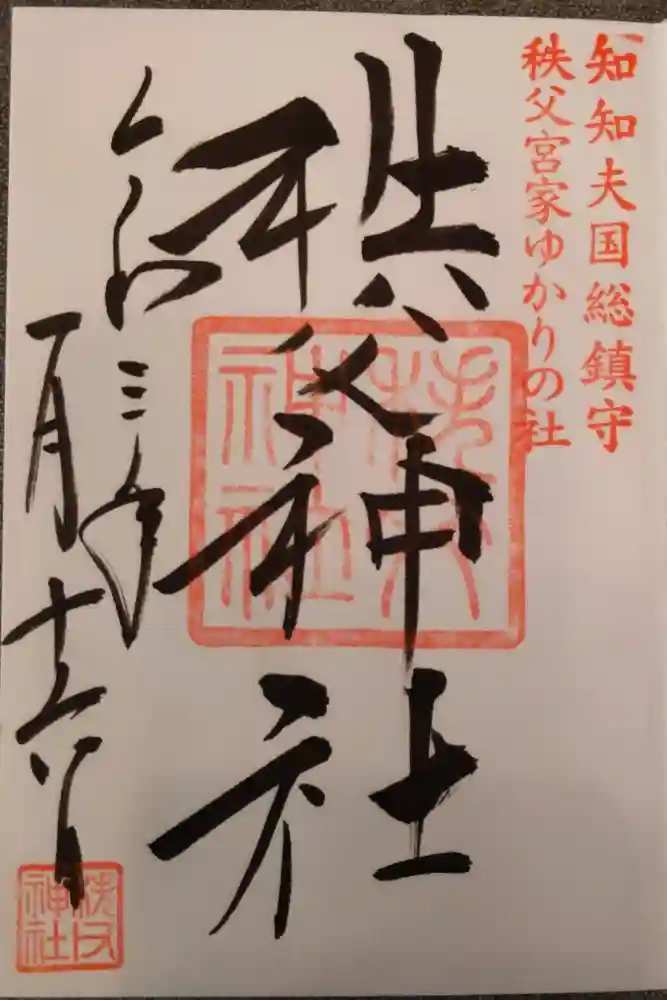 知知夫国総鎮守
秩父宮家ゆかりの社
秩父神社
秩父神社
令和三年
一月十六日
秩父神社